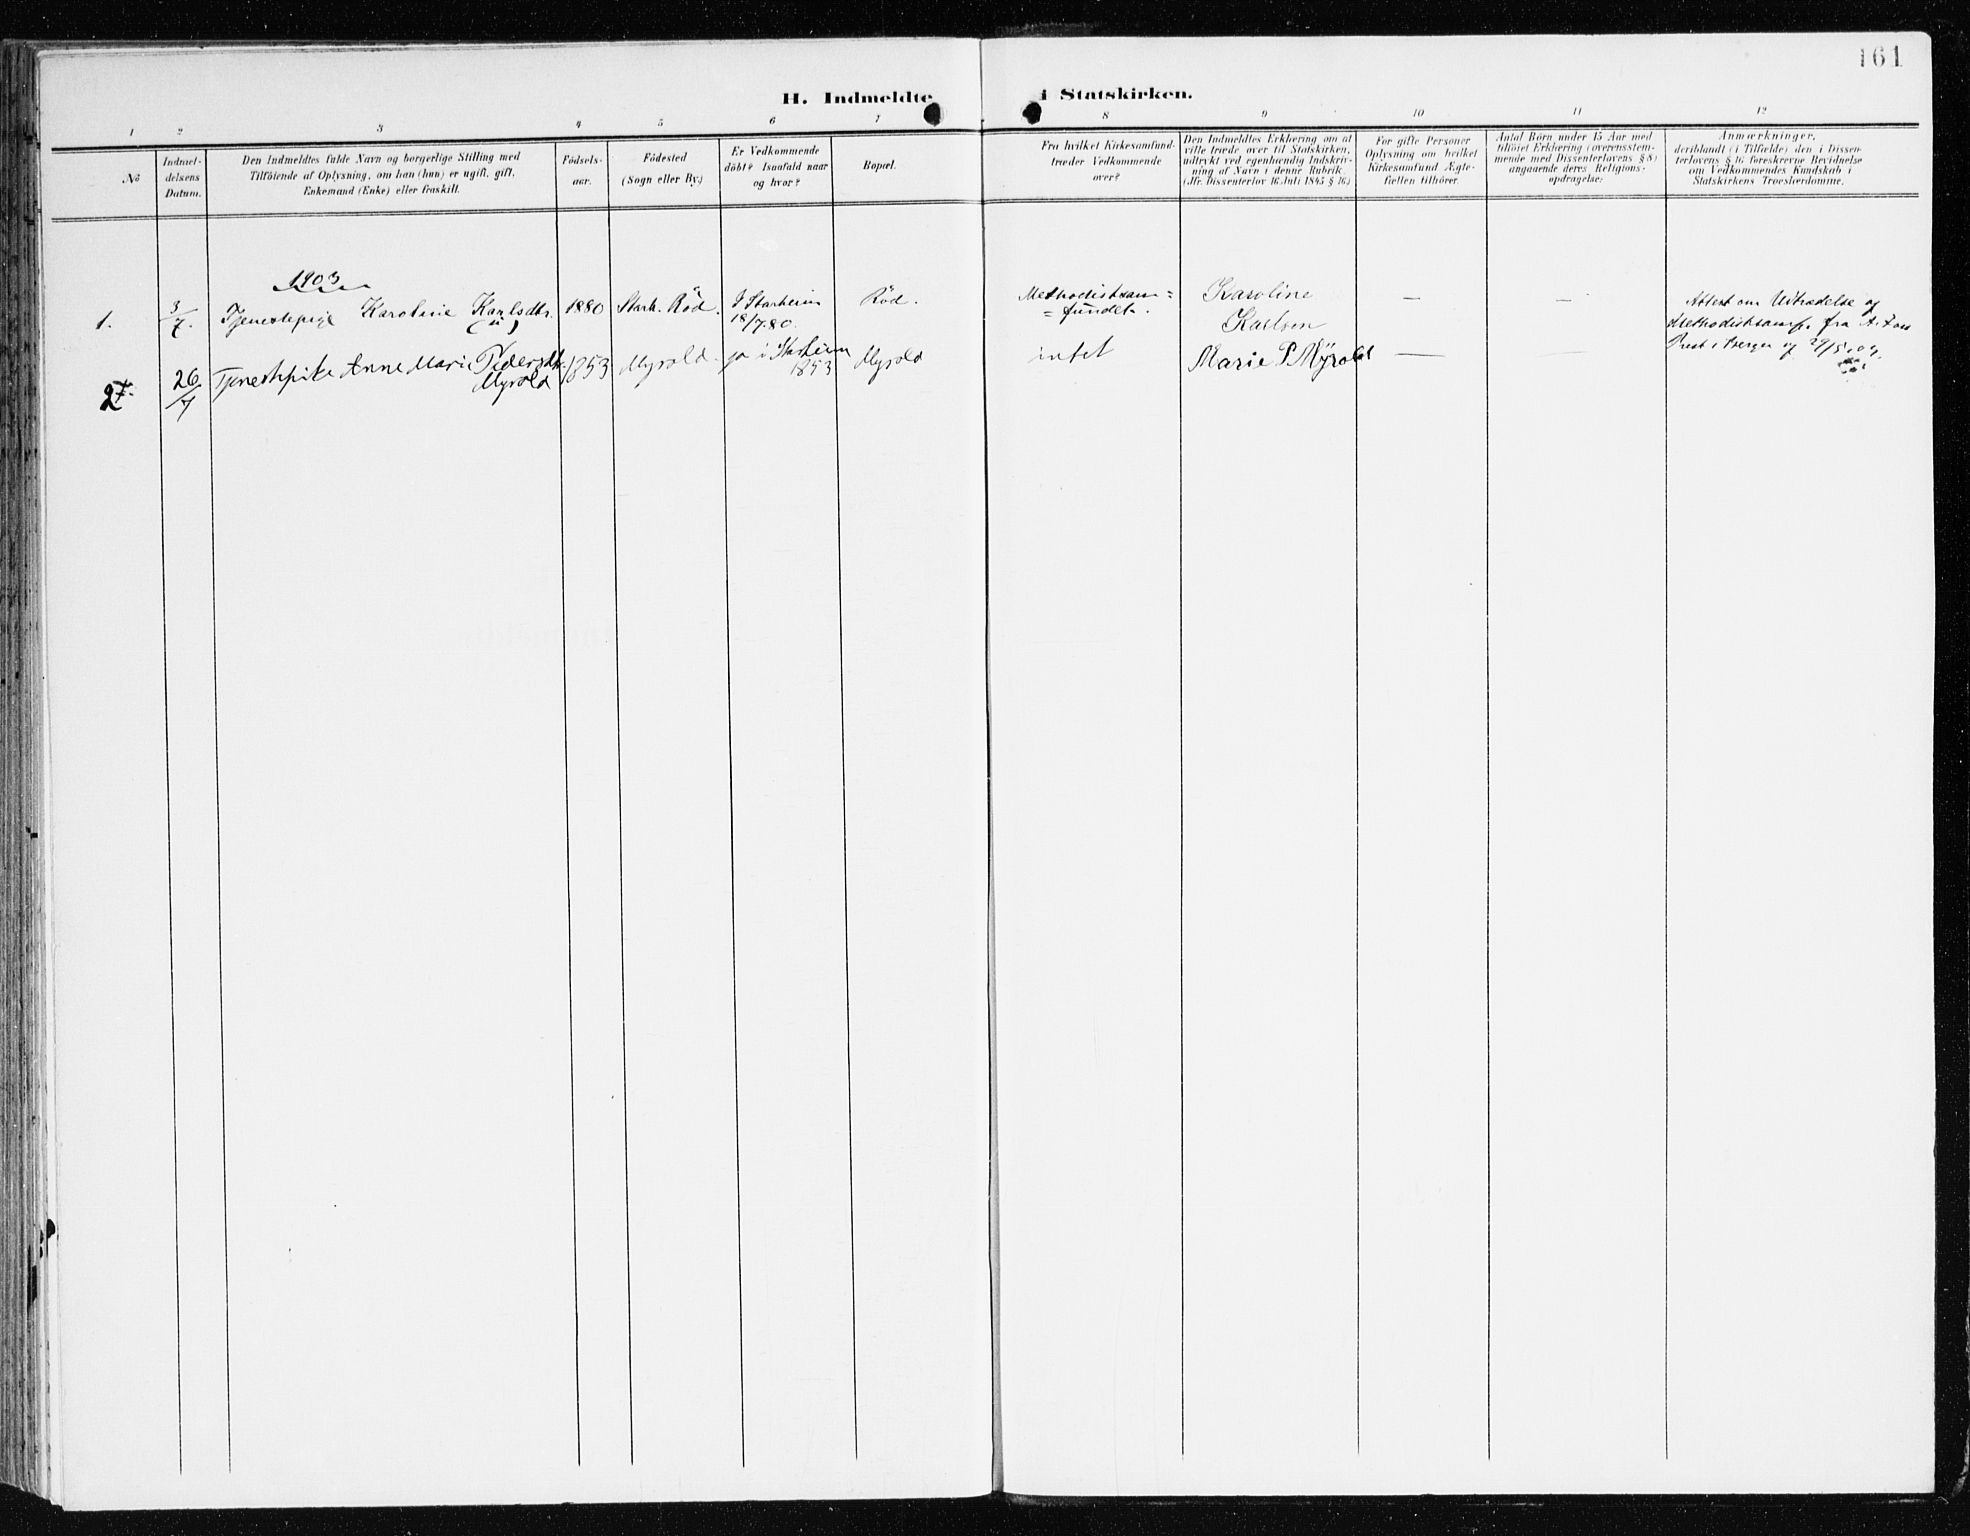 161
H. Indmeldte i Statskirken.
1 2 3 4 5 6 7 8 9 10 11 12
No
Indmel-
delsens
Datum.
Den Indmeldtes fulde Navn og borgerlige Stilling med
Tilföiende af Oplysning, om han (hun) er ugift, gift,
Enkemand (Enke) eller fraskilt.
Födsels-
aar.
Födested
(Sogn eller By.)
Er Vedkommende
döbt? Isaafald naar
og hvor?
Bopæl.
Fra hvilket Kirkesamfund
træder Vedkommende
over?
Den Indmeldtes Erklæring om at
ville træde over til Statskirken,
udtrykt ved egenhændig Indskriv-
ning af Navn i denne Rubrik.
(Jfr. Dissenterlov 16 Juli 1845 § 16.)
For gifte Personer
Oplysning om hvilket
Kirkesamfund Ægte-
fællen tilhörer.
Antal Börn under 15 Aar med
tilföiet Erklæring (overensstem-
mende med Dissenterlovens § 8)
angaaende deres Religions-
opdragelse:
Anmærkninger,
deriblandt (i Tilfælde) den i Dissen-
terlovens § 16 foreskrevne Bevidnelse
om Vedkommendes Kundskab i
Statskirkens Troeslærdomme.
1903
1.
3/7.
Tjenestepige Karoline Karlsdtr.
(u)
1880
Stark. Röd.
I Starheim
18/7.80.
Röd.
Methodistsam=
=fundet.
Karoline
Karlsen
—
—
Attest om Udtrædelse og
Methodistsamf. fra
Prest i Bergen
2
26/7
Tjenestepike Anne Marie Pedersdtr.
Myrold
1853
Myrold.
ja i Starheim
1853
Myrold
intet
Marie P Myrold
—
—